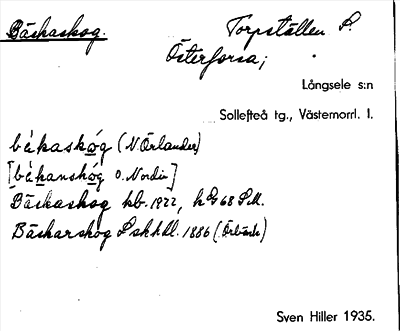 Bäskaskog. Torpställen S.
Österforsa;
Långsele s:n
Sollefteå tg., Västernorrl. l.
bèkaskóg (N. Örlander)
[bèkanskóg O. Nordin]
Bäskaskog kb. 1922,
Bäskarskog 1886
Sven Hiller 1935.